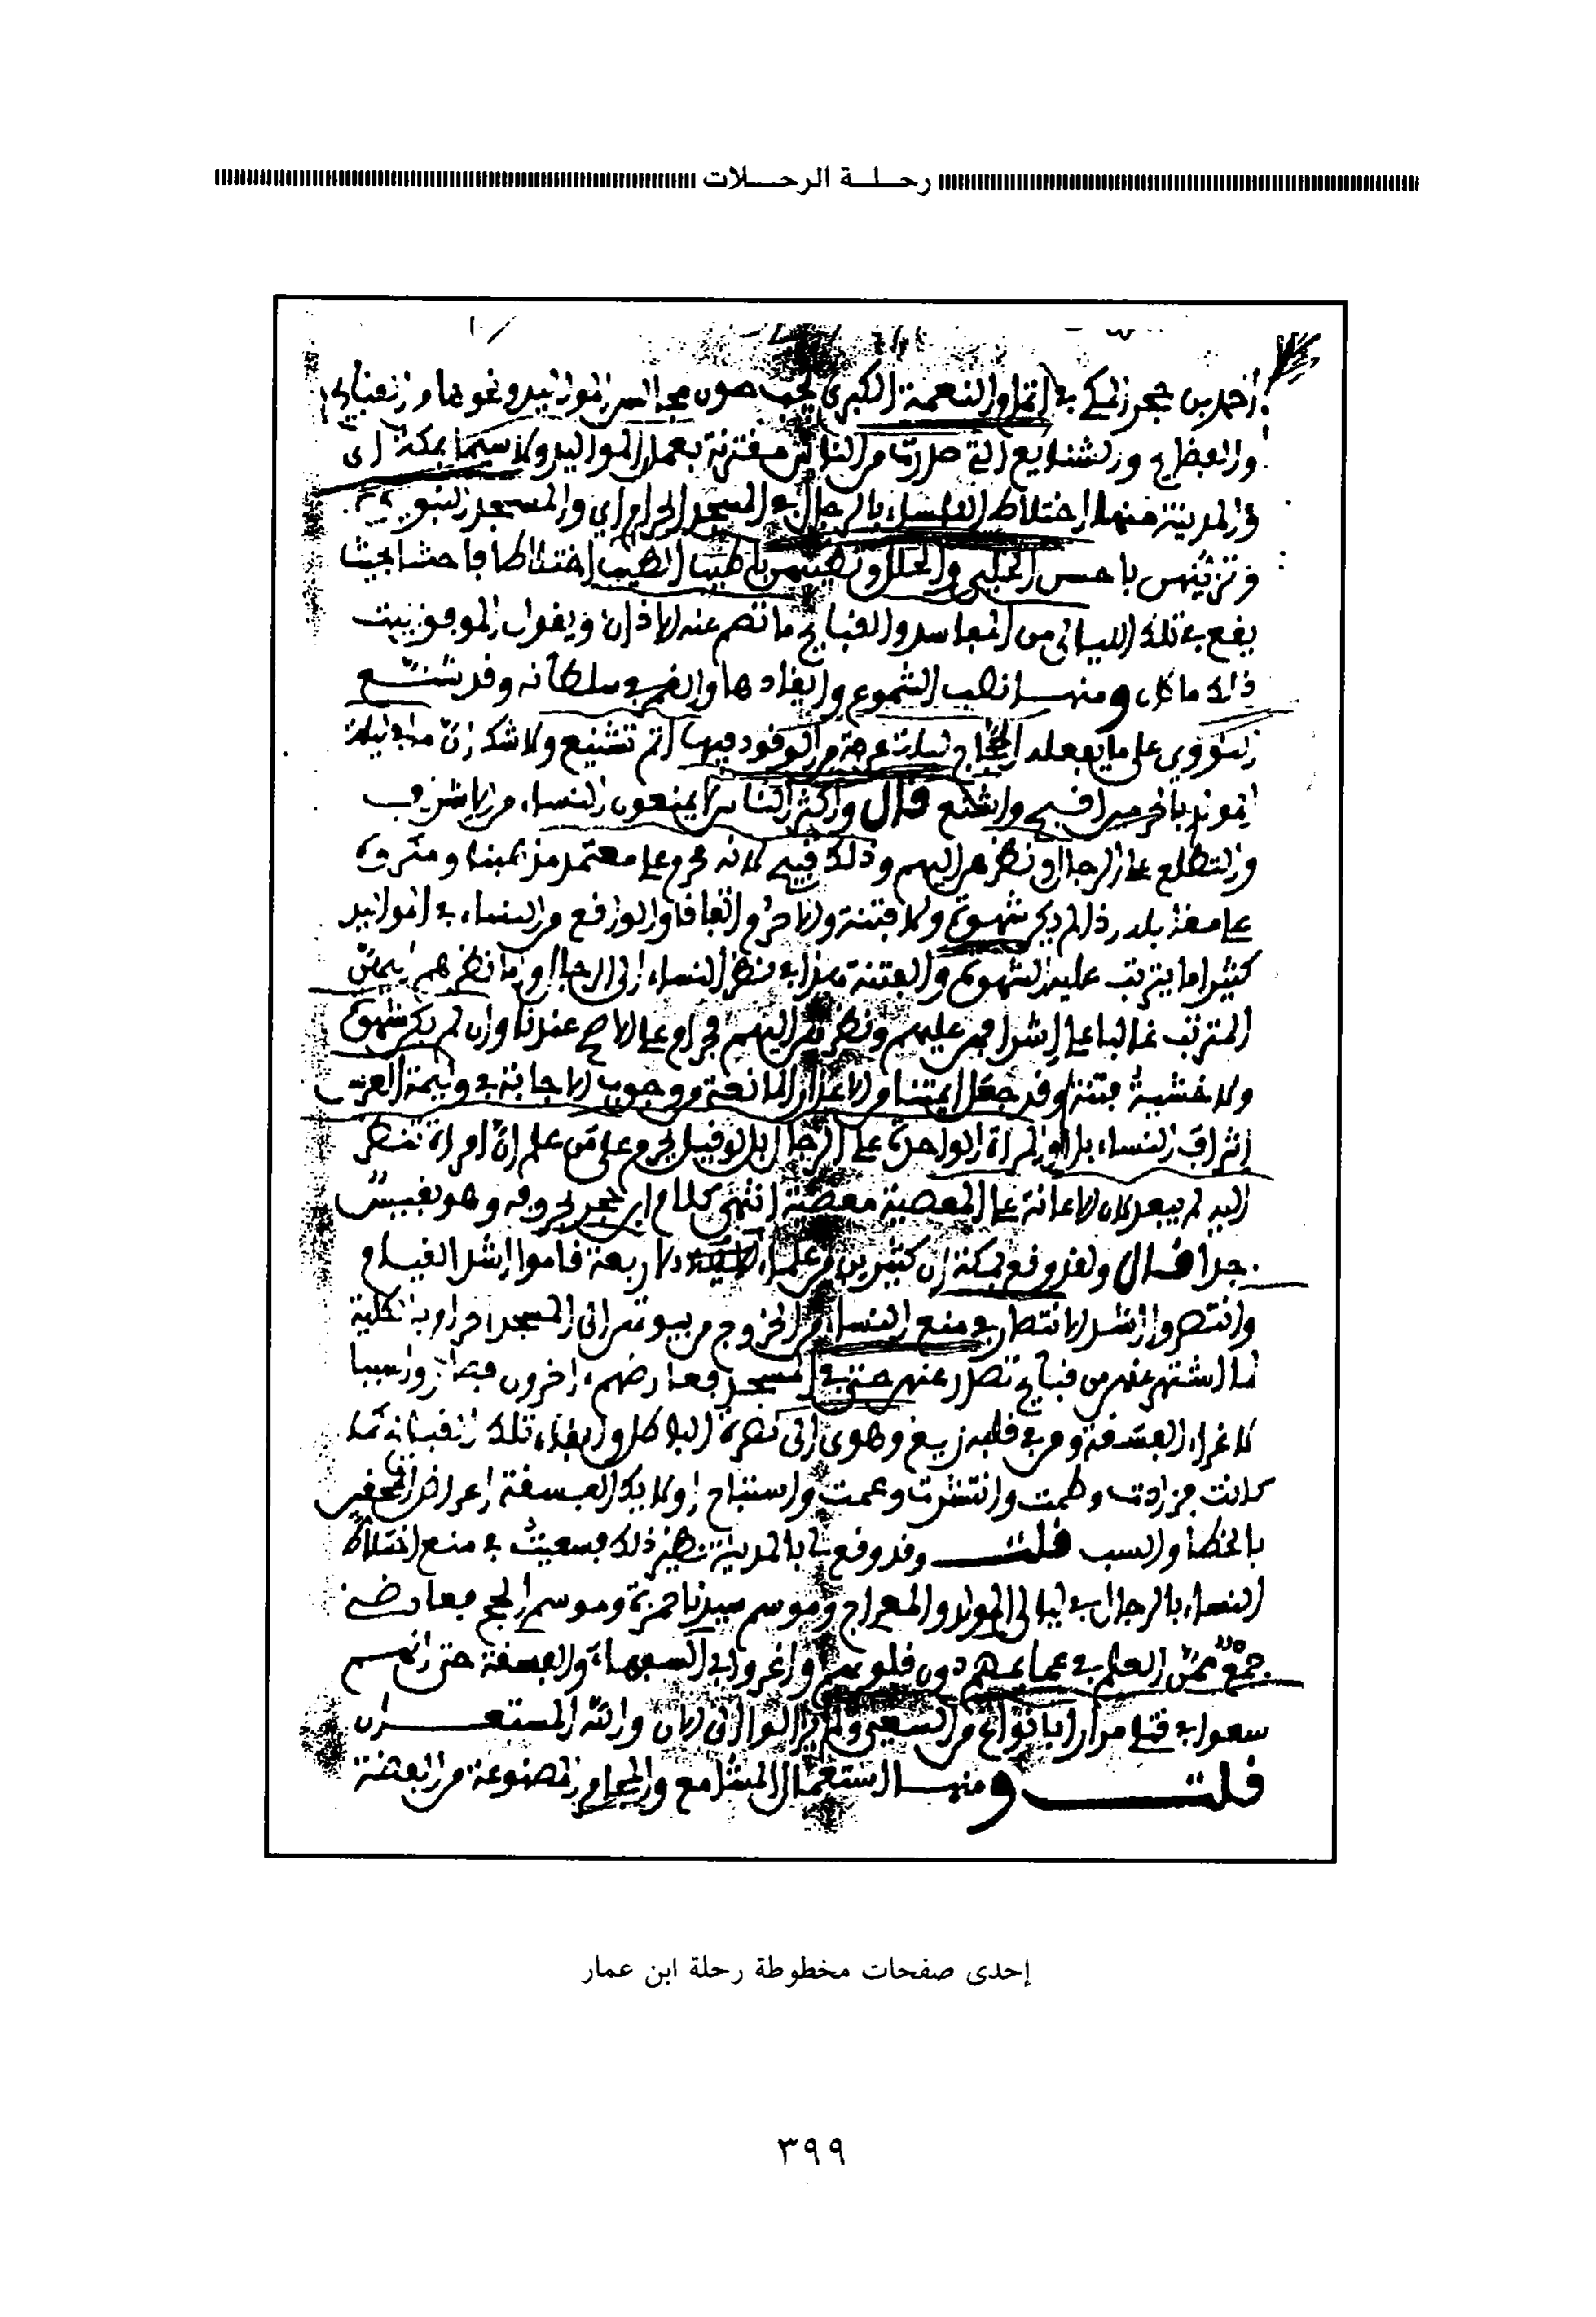 رحلة الرحلات
أحمد بن حجر المكي في إتمام النعمة الكبرى يجب صون مجالس الموالد ونحوها من القبايح
والفظايح والشنايع التي صارت من الناس مقترنة بعمل الموالد ولا سيما بمكة أي
والمدينة فمنها اختلاط النساء بالرجال في المسجد الحرام أي والمسجد النبوي
وتزينهن باحسن الحلي والحلل وتطيبهن باطيب الطيب اختلاطا فاحشا بحيث
يقع في تلك الليالي من المفاسد والقبايح ما تصم عنه الاذان ويقول الموفق ليت
ذلك ما كان ومنها نصب الشموع وايقادها والقمر في سلطانه وقد شنع
النووي على ما يفعله الحجاج ليلة عرفة من الوقود فيها أتم تشنيع ولا شك أن ما في ليلة
المولد بالحرمين أقبح وأشنع قال وأكثر الناس لا يمنعون النساء من الإشراف
والتطلع على الرجال ونظرهن إليهم وذلك قبيح لأنه محرم على معتمد مذهبنا ومكروه
على مقابله إذا لم يكن شهوة ولا فتنة وإلا حرم اتفاقا والواقع من النساء في الموالد
كثيرا ما يترتب عليه الشهوة والفتنة هذا في نظر النساء إلى الرجال وأما نظرهم
المترتب غالبا على إشرافهن عليهم ونظرهن إليهم فحرام على الأصح عندنا وإن لم يكن شهوة
ولا خشية فتنة وقد جعل أيمتنا من الأعذار المانعة وجوب الإجابة في وليمة العرس
إشراف النساء بل أو المرأة الواحدة على الرجال بل لو قيل يحرم على من علم أن امرأة تنظر
إليه لم يبعد لأن الإعانة على المعصية معصية انتهى كلام ابن حجر بحروفه وهو نفيس
جدا قال ولقد وقع بمكة أن كثيرين من علماء الأربعة قاموا أشد القيام
وانتصروا أشد الانتصار في منع النساء من الخروج من بيوتهن إلى المسجد الحرام بالكلية
لما اشتهر عنهن من قبايح تصدر عنهن حتى في المسجد فعارضهم آخرون
لاغراء الفسقة ومن في قلبه زيغ وهوى إلى نصرة الباطل وإبقاء تلك القبايح
كانت فزادت وطمت وانتشرت وعمت واستباح أولايك الفسقة أعراض المحقين
بالخطأ والسب قلت وقد وقع لنا بالمدينة نظير ذلك فسعيت في منع اختلاط
النساء بالرجال في ليالي المولد والمعراج وموسم سيدنا حمزة وموسم الحج فعارضني
جمع ممن العلم في عمايمهم دون قلوبهم وأغروا بي السفهاء والفسقة حتى أنهم
سعوا في قتلي مرارا بأنواع من السعي ولم يزالوا إلى الآن والله المستعان
قلت ومنها استعمال المشامع والمجامر المصنوعة من الفضة
إحدى صفحات مخطوطة رحلة ابن عمار
٣٩٩